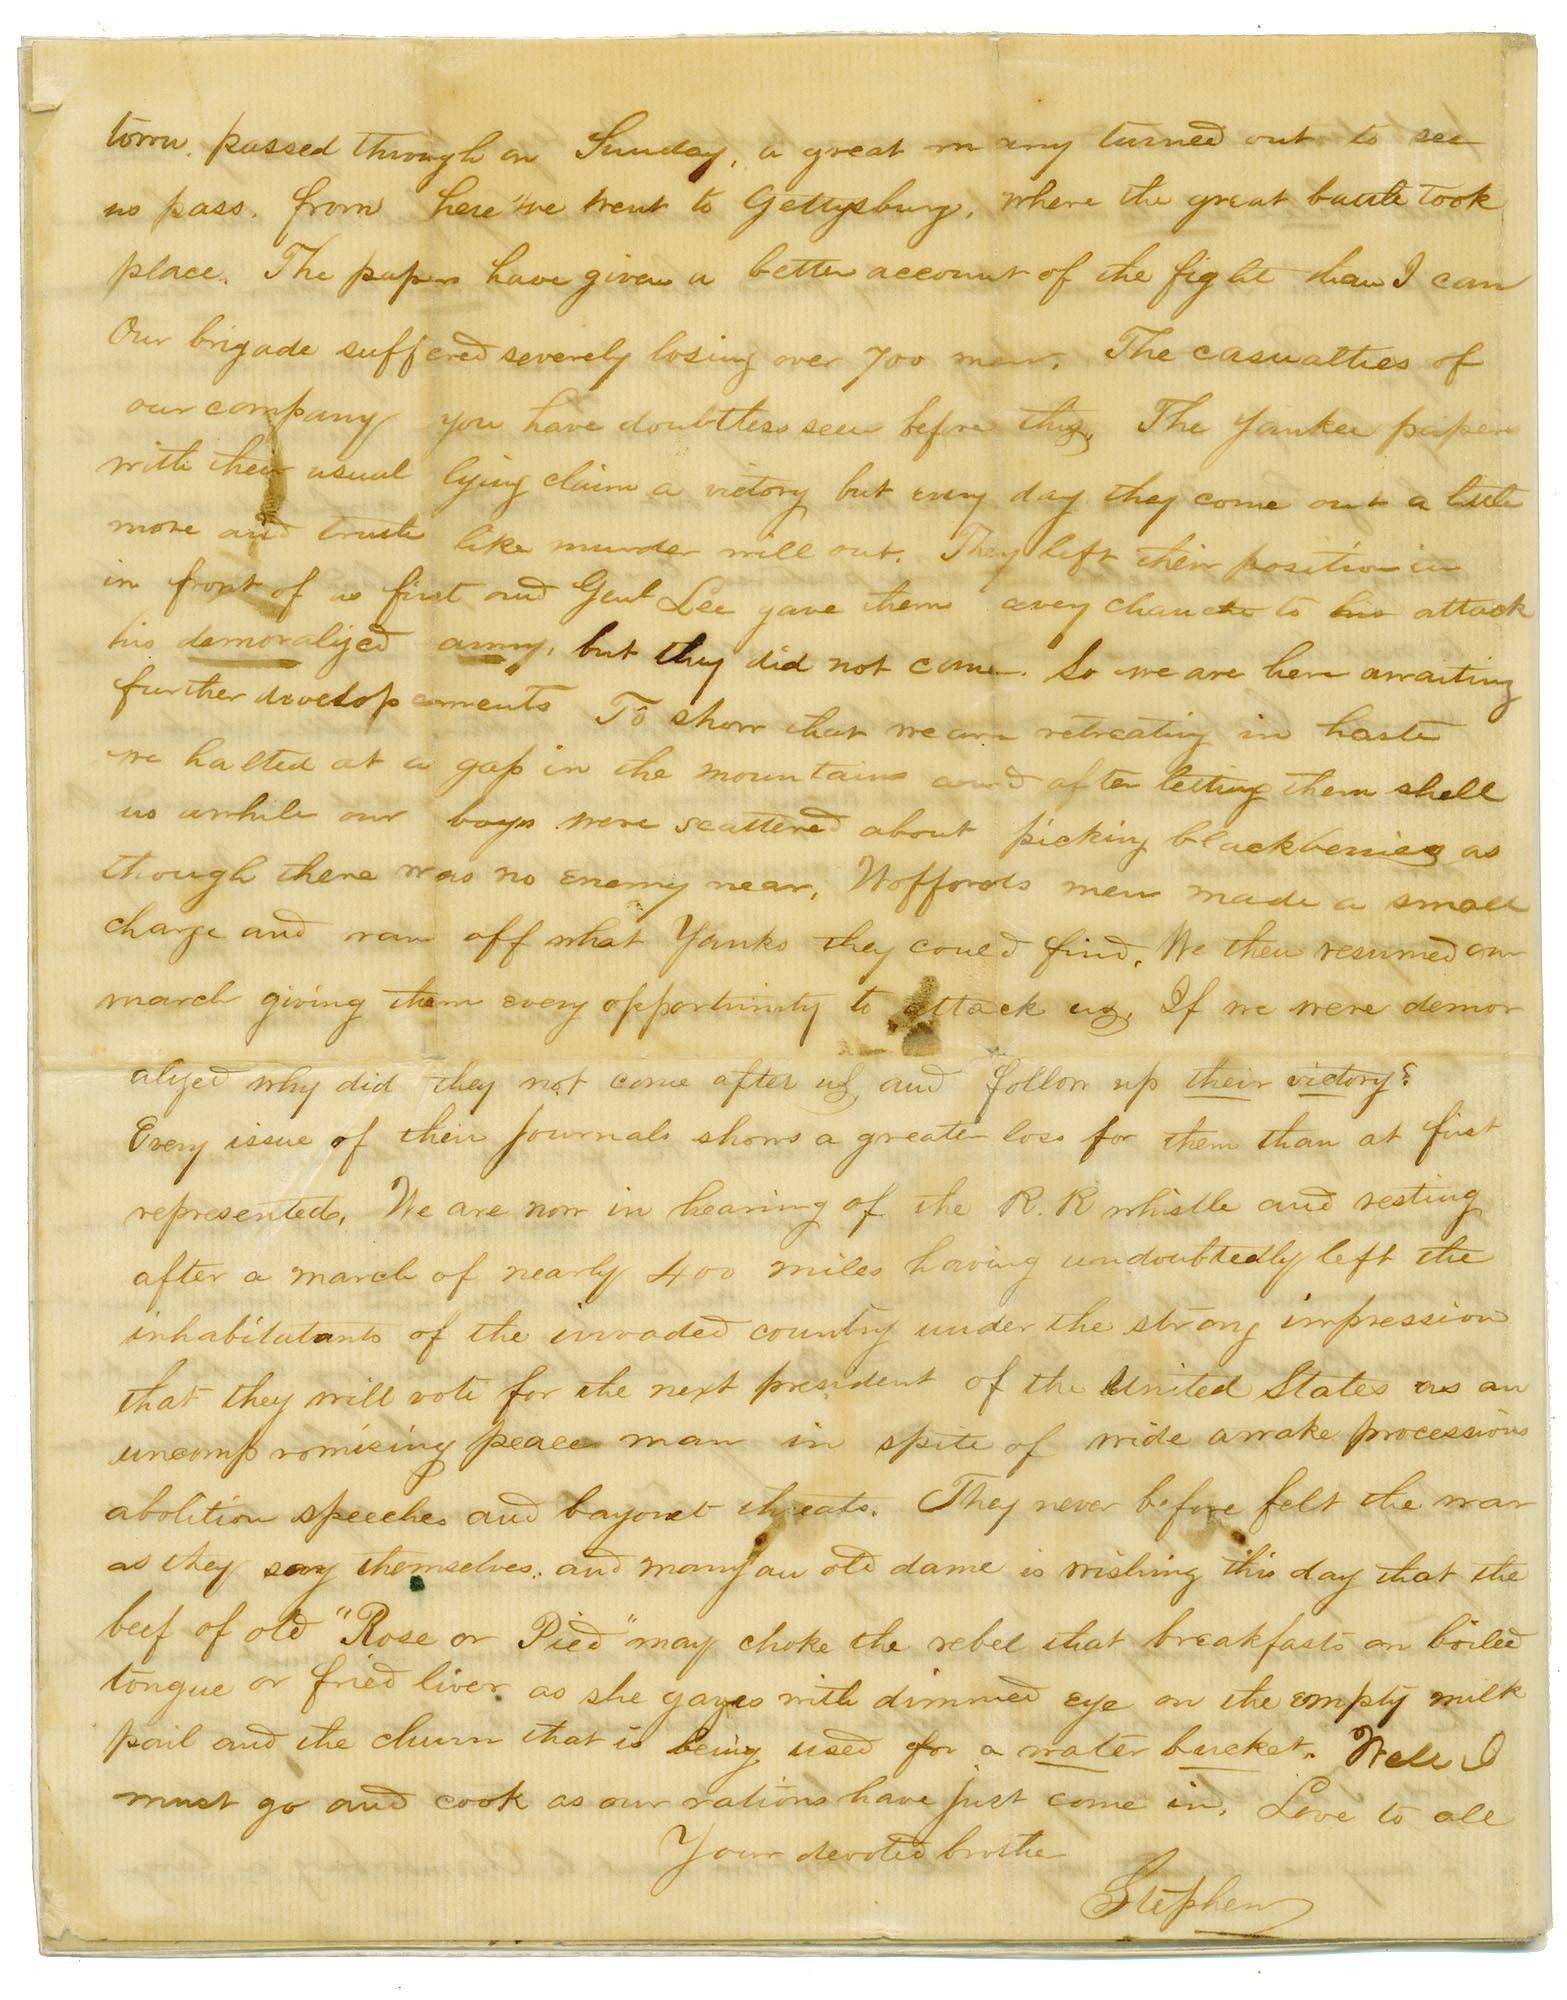 town. passed through on Sunday, a great many turned out to see
us pass. from here we went to Gettysburg, where the great battle took
place. The papers have given a better account of the fight than I can
Our brigade suffered severely losing over 700 men. The casualties of
our company you have doubtless seen before this, The Yankee papers
with their usual lying claim a victory but every day they come out a little
more and truth like murder will out. They left their position in
in front of us first and Genl Lee gave them every chance to attack
his demoralized army, but they did not come. So we are here awaiting
further developements To show that we are retreating in haste
we halted at a gap in the mountains and after letting them shell
us awhile our boys were scattered about picking blackberries as
though there was no enemy near, Woffords men made a small
charge and ran off what Yanks they could find. We then resumed our
march giving them every opportunity to attack us, If we were demor
alized why did they not come after us, and follow up their victory?
Every issue of their journals shows a greater loss for them than at first
represented. We are now in hearing of the R. R whistle and resting
after a march of nearly 400 miles having undoubtedly left the
inhabitants of the invaded country under the strong impression
that they will vote for the next president of the United States as an
uncompromising peace man in spite of wide awake processions
abolition speeches and bayonet threats. They never before felt the war
as they say themselves. and many an old dame is wishing this day that the
beef of old "Rose or Pied" may choke the rebel that breakfasts on boiled
tongue or fried liver as she gazes with dimmed eye on the empty milk
pail and the churn that is being used for a water bucket. Well I
must go and cook as our rations have just come in, Love to all
Your devoted brother
Stephen